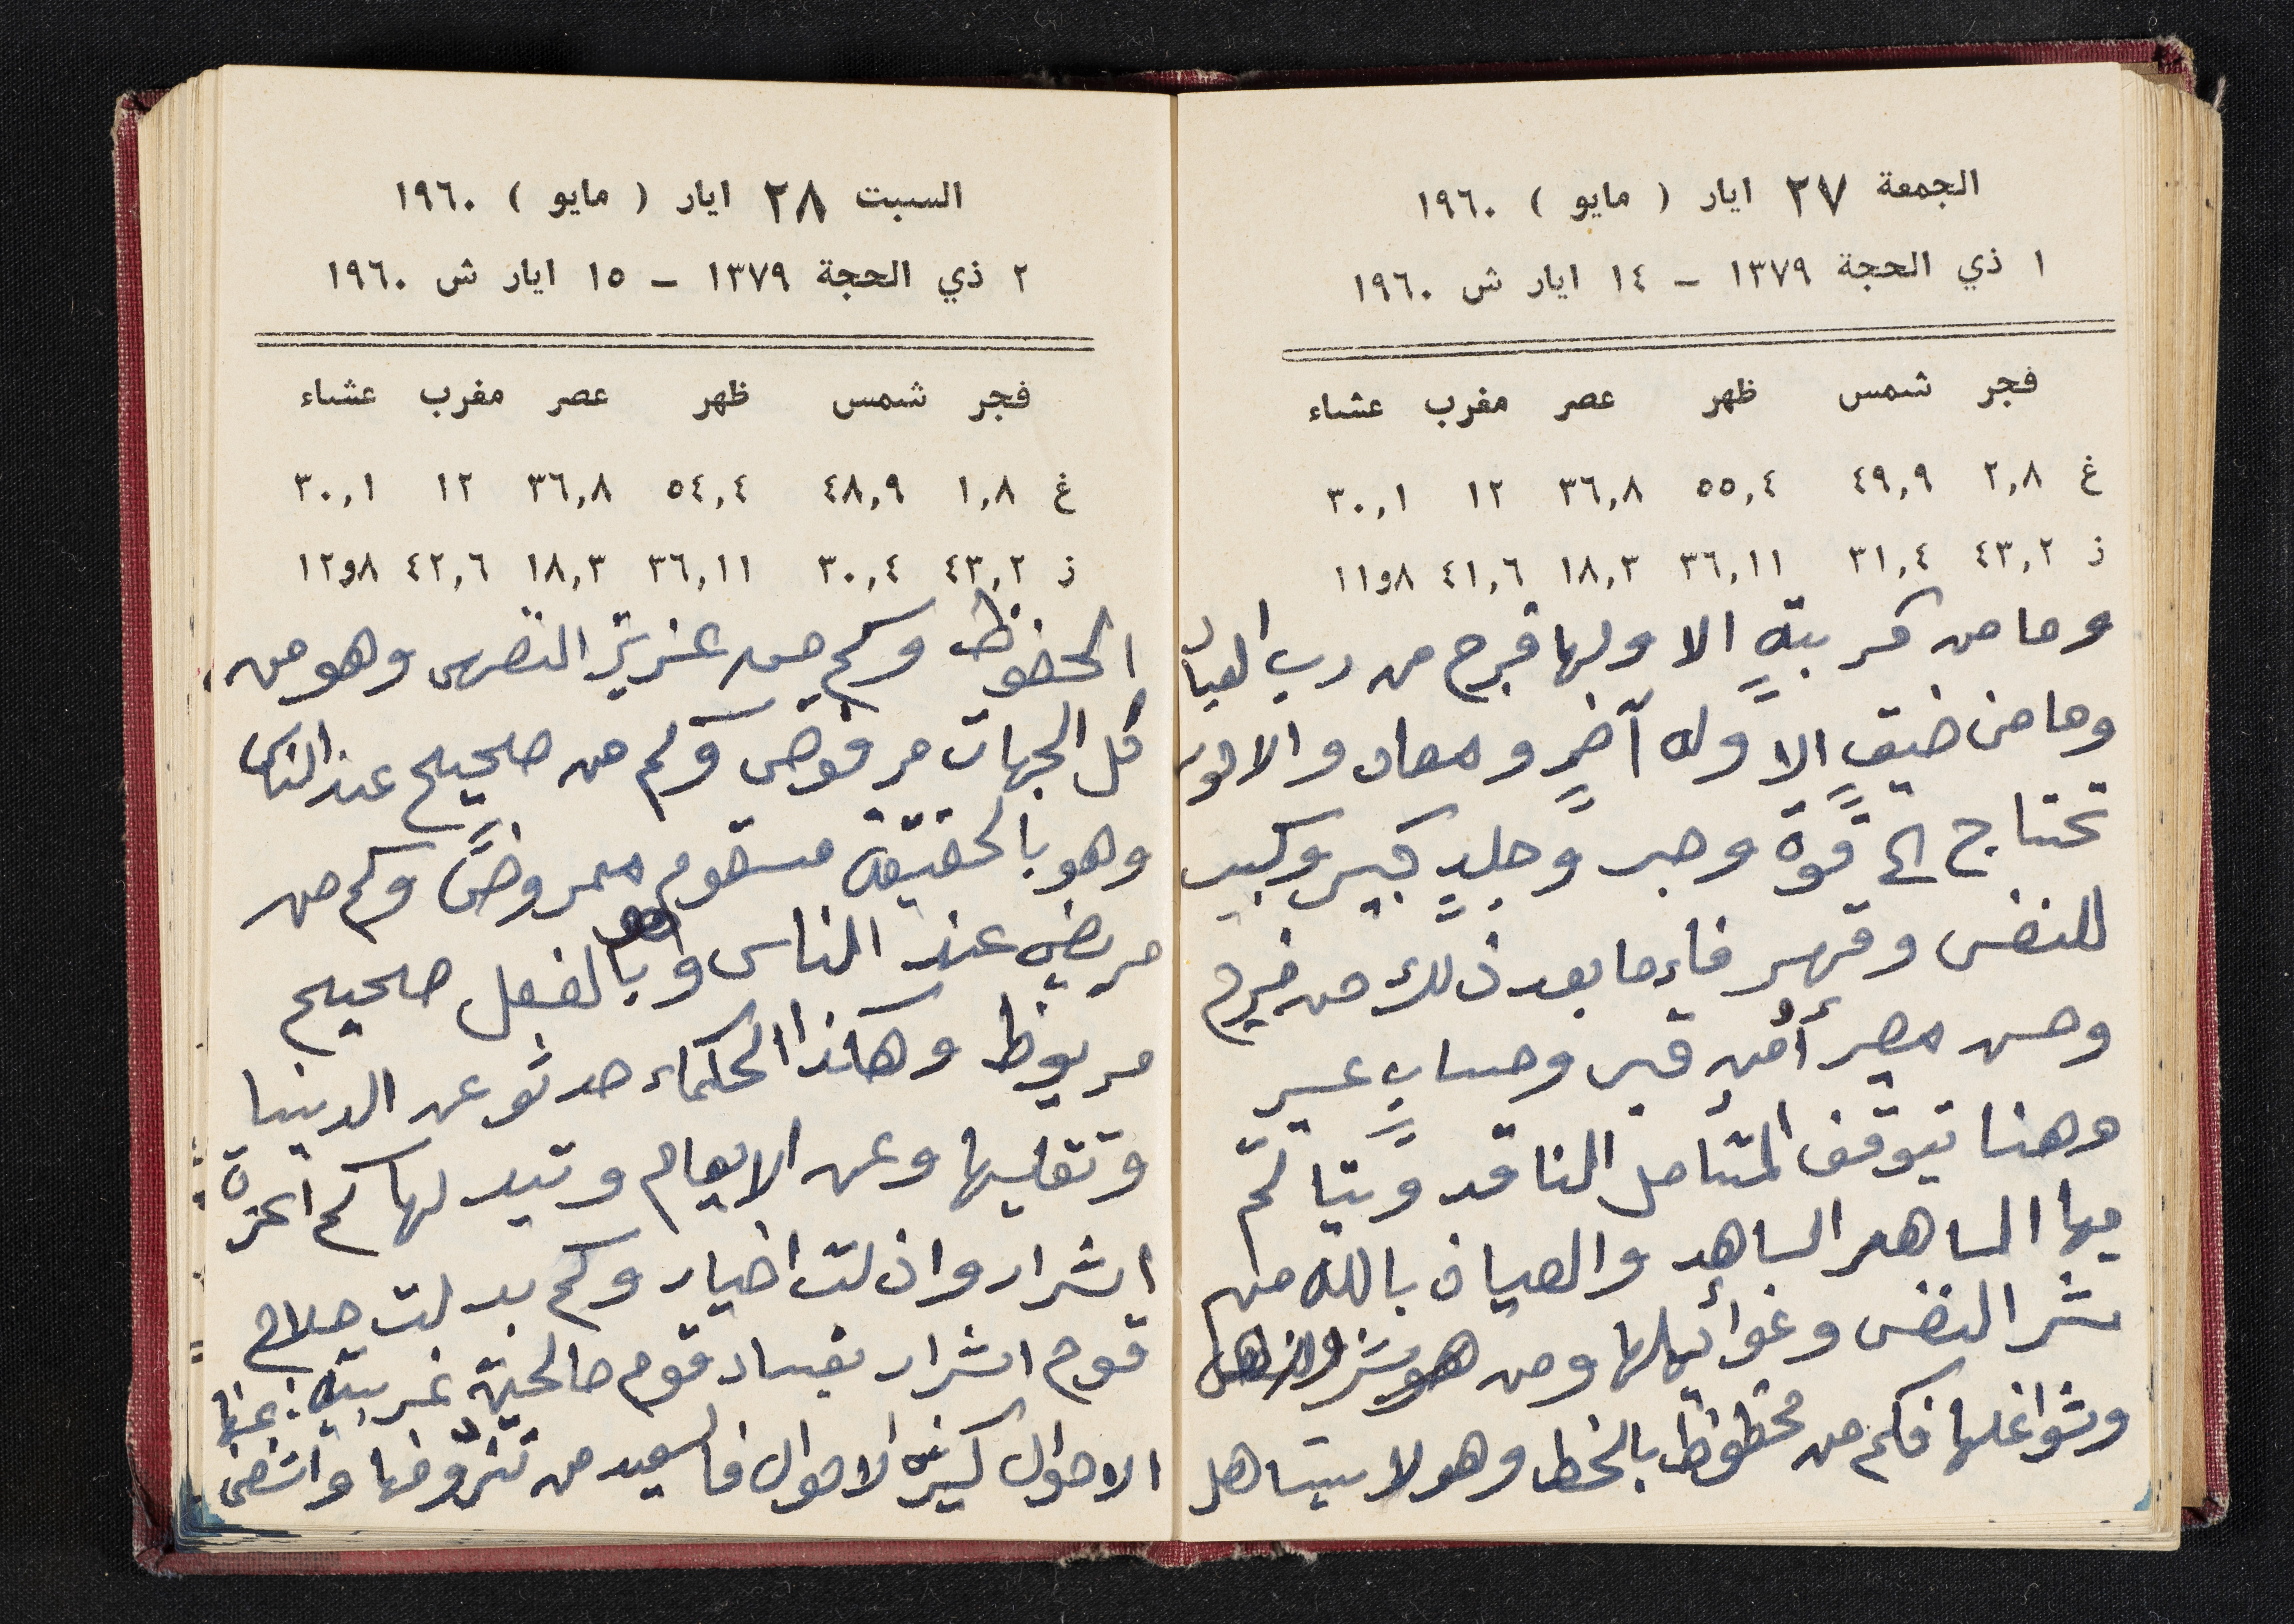 الجمعة ٢٧ ايار ( مايو ) ١٩٦٠
١ ذي الحجة ١٣٧٩ – ١٤ ايار ش ١٩٦٠
فجر شمس ظهر عصر مغرب عشاء
غ ٢,٨ ٤٩,٩ ٥٥,٤ ٣٦,٨ ١٢ ٣٠,١
ز ٤٣,٢ ٣١,٤ ٣٦,١١ ١٨,٣ ٤١,٦ ٨و١١
وما من كربةٍ الا ولها فرج من رب العباد
وما من ضيقٍ الا وله آخرٍ ومعاد والامور
تحتاج الى قوة وصبر وجلدٍ كبير وكبير
للنفس وقهر فاءما بعد ذلك من فرج
وحسن مصير أمن قبر وحسابٍ عسير
وهنا تيوقف المتأمل الناقد ويتألم
الساهر الساهد والعياذ بالله من
شر النفس وغوائيلها ومن
وشواغلها فكم من محظوظ بالحظ وهو لا يستاهل
السبت ٢٨ ايار ( مايو ) ١٩٦٠
٢ ذي الحجة ١٣٧٩ – ١٥ ايار ش ١٩٦٠
فجر شمس ظهر عصر مغرب عشاء
غ ١,٨ ٤٨,٩ ٥٤,٤ ٣٦,٨ ١٢ ٣٠,١
ز ٤٣,٢ ٣٠,٤ ٣٦,١١ ١٨,٣ ٤٢,٦ ٨و١٢
الحضوظ وكم من عزيز النفس وهو من
كل الجهات مرفوض وكم من صحيح عند الناس
وهو بالحقيقة مسقوم ممروضً وكم من
مريض عند الناس وهو بالفعل صحيح
مربوظ وهاكذا الحكماء حدثو عن الدينيا
وتقليبها وعن الايعام وتبدلها كم اعزة
اشرار واذلت اخيار وكم بدلت صلاح
قوم اشرار بفساد قوم صالحين غريبة
الاحوال كثيرة الاحوال فالسعيد من تزوّد منها واتضى